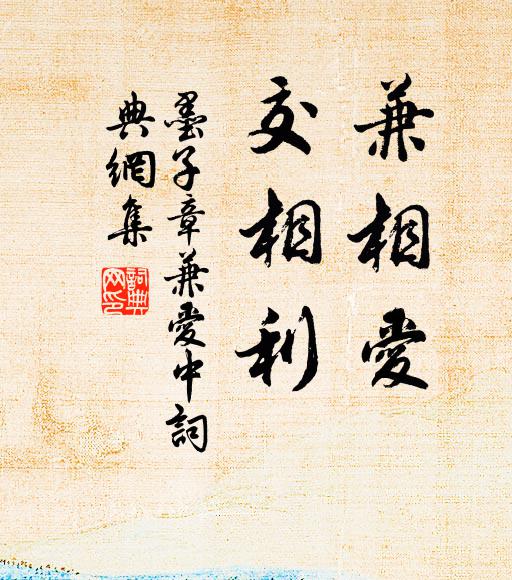 兼相愛
交相利
墨子章兼愛中詞
典網集
詞典
网印